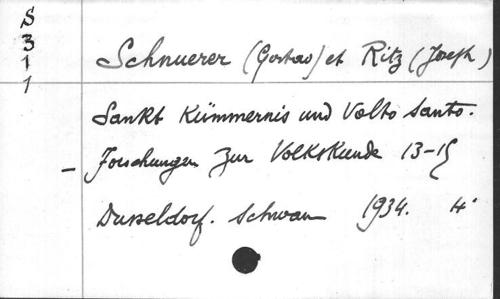 S
3
1
1
Schnuerer (Gustav) et Ritz (Joseph)
Sankt Kümmernis und Volto Santo.
– Forschungen zur Volkskunde 13-15
Dusseldorf. Schwann 1934. 4°